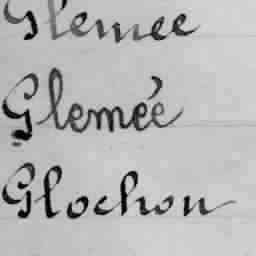 Glemee
Glemée
Glochon